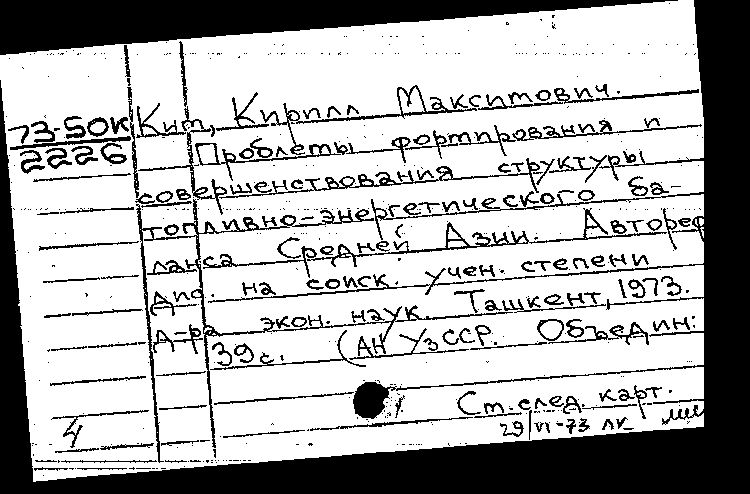 73-50К
2226
Ким, Кирилл Максимович.
Проблемы формирования и
совершенствования структуры
топливно-энергетического ба-
ланса Средней Азии. Автореф
дис. на соиск. учен. степени
д-ра экон. наук. Ташкент, 1973.
39 с. (АН УзССР. Объедин.
См. след. карт.
29/VI-73 ЛК
4